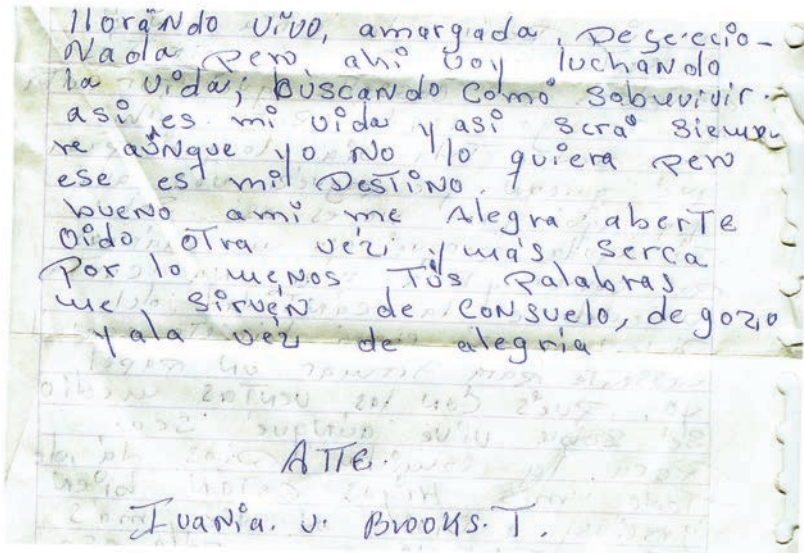 llorando vivo, amargada, Desereccio-
Nada pero ahi voy luchando
la vida, buscando como sobrevivir.
asi es mi vida y asi será siemp-
re aúnque yo no lo quiera pero
ese es mi Destino.
bueno ami me Alegra aberte
oido otra vézi y más serca
Por lo menos Tús Palabras
me sirvén de consuelo, de gozio
y ala vézi de alegria
ATTE.
Ivania. v. Brooks. T.